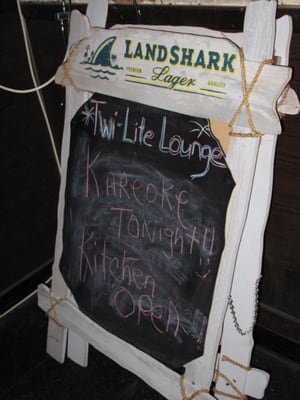 LANDSHARK
PREMIUM Lager QUALITY
*Twi-Lite Lounge*
Kareoke
Tonight!!
Kitchen
Open